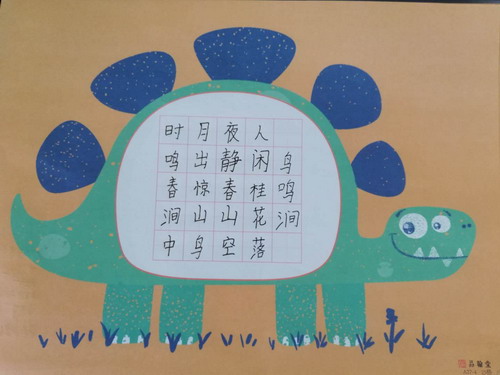 鸟鸣涧
人闲桂花落
夜静春山空
月出惊山鸟
时鸣春涧中
品翰堂